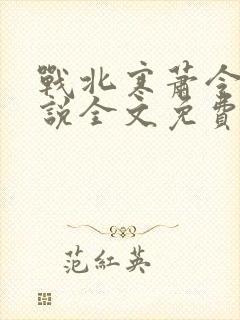 戰北寒蕭令
說全文免費
范紅英